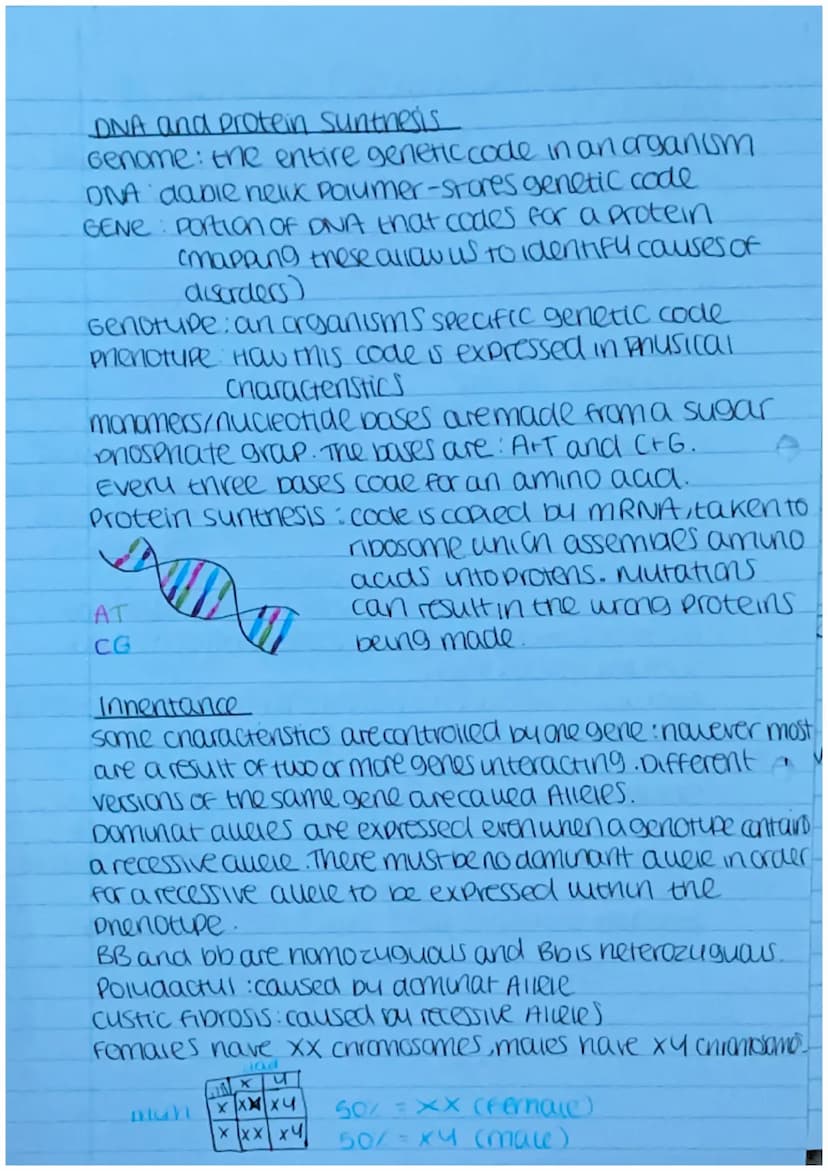 DNA and protein synthesis
Genome: the entire genetic code in an organism
DNA: double helix polymer-stores genetic code
GENE: portion of DNA that codes for a protein
(mapping these allow us to identify causes of
disorders)
Genotype: an organisms specific genetic code
phenotype: How this code is expressed in physical
characteristics
monomers/nucleotide bases are made from a sugar
phosphate group. The bases are: A+T and C+G.
Every three bases code for an amino acid.
Protein synthesis: code is copied by mRNA, taken to
ribosome which assembles amino
acids into protens. Mutations
can result in the wrong proteins
being made.
AT
CG
Inheritance
some characteristics are controlled by one gene: however most
are a result of two or more genes interacting. Different
versions of the same gene are called Alleles.
Dominat alleles are expressed even when a genotype contains
a recessive allele. There must be no dominant allele in order
for a recessive allele to be expressed within the
phenotype.
BB and bb are homozyguous and Bb is heterozyguous.
Polydactyl: caused by dominat Allele
cystic fibrosis: caused by recessive Alleles
females have XX chromosomes, males have XY chromosomes.
dad
X Y
mum
X XX XY
X XX XY
50% = XX (female)
50% = XY (male)